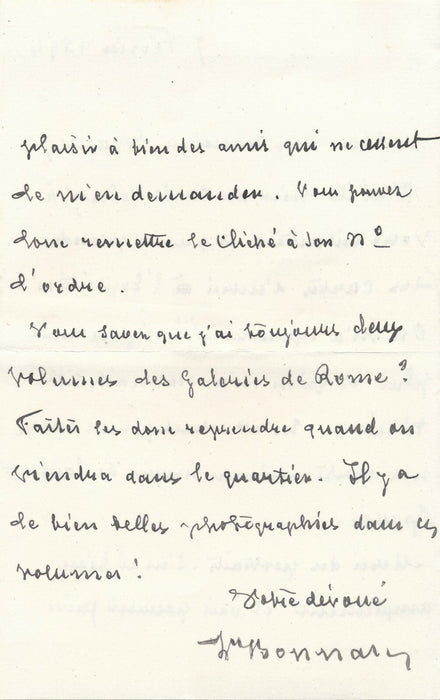 plaisir à bien des amis qui ne cessent
de m'en demander. Vous pouvez
donc remettre le cliché à son Nº
d'ordre.
Vous savez que j'ai toujours deux
volumes des Galeries de Rome ?
Faites les donc reprendre quand on
viendra dans le quartier. Il y a
de bien belles photographies dans ces
volumes !
Votre dévoué
Ln Bonnat